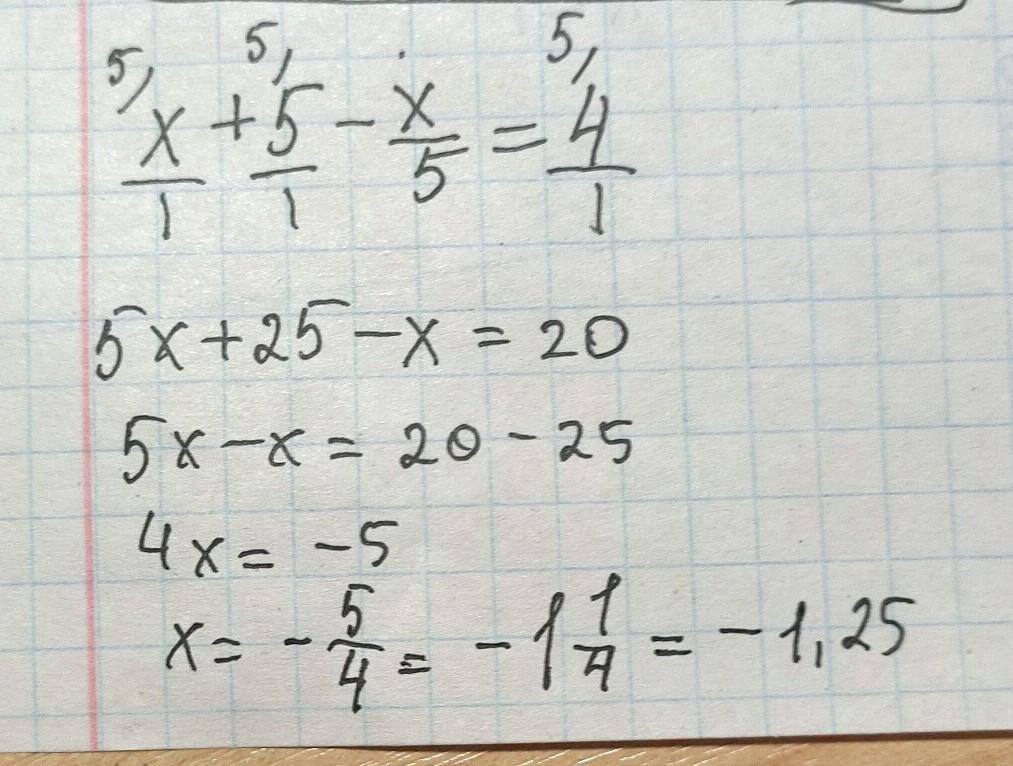 5, 5, 5,
x/1 + 5/1 - x/5 = 4/1
5x + 25 - x = 20
5x - x = 20 - 25
4x = -5
x = - 5/4 = - 1 1/4 = - 1,25